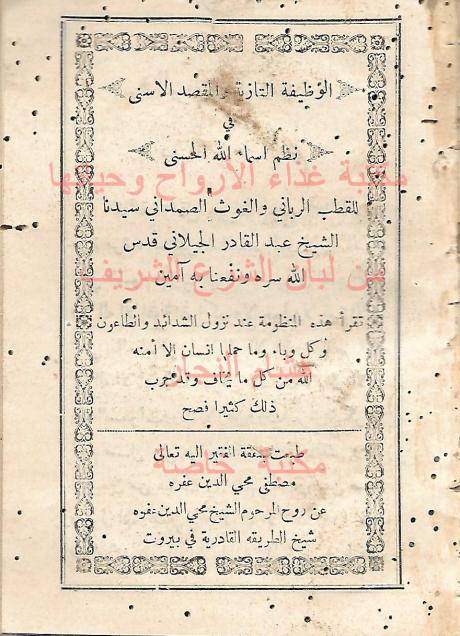 الوظيفة التازية والمقصد الاسنى
في
نظم اسماء الله الحسنى
مكتبة غذاء الأرواح وحياتها
للقطب الرباني والغوث الصمداني سيدنا
الشيخ عبد القادر الجيلاني قدس
من لبان الشرع الشريف
الله سره ونفعنا به آمين
تقرأ هذه المنظومة عند نزول الشدائد والطاعون
وكل وباء وما حملها انسان الا أمنه
هشام النجار
الله من كل ما يخاف وقد جرب
ذلك كثيرا فصح
طبعت بنفقة الفقير اليه تعالى
مكتبة خاصة
مصطفى محي الدين عفره
عن روح المرحوم الشيخ محي الدين عفره
شيخ الطريقه القادرية في بيروت